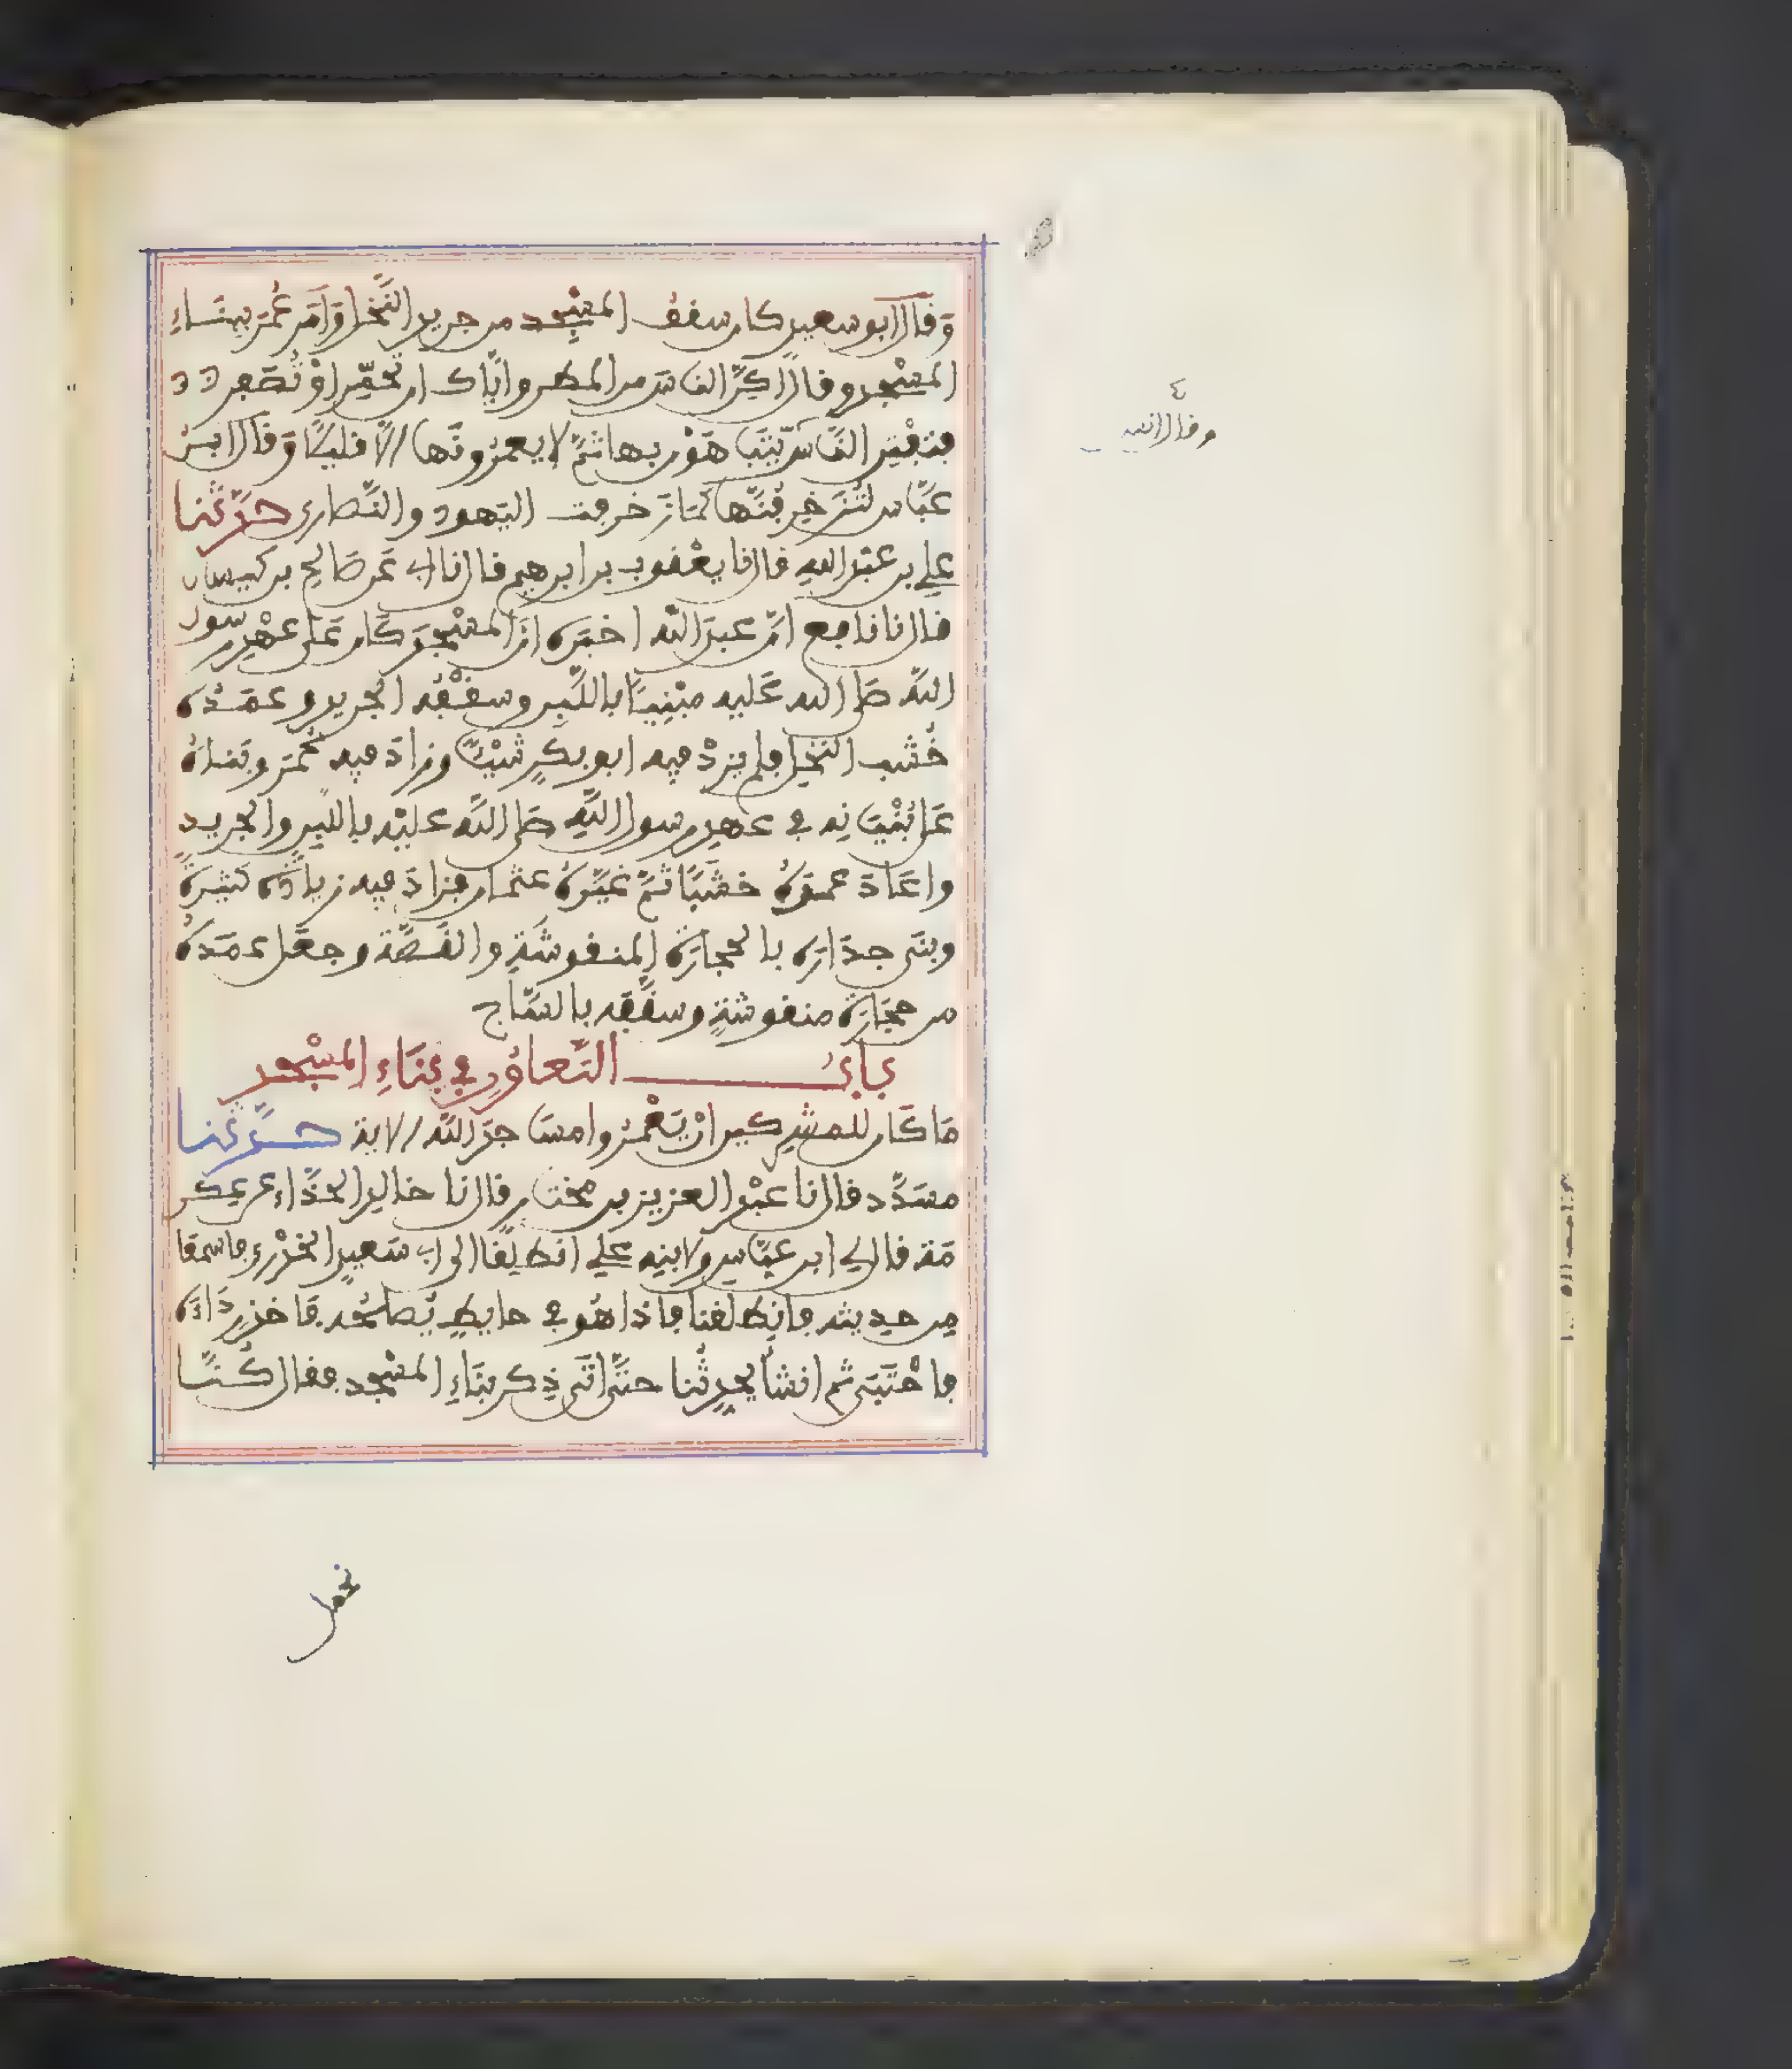 وَقَالَ ابو سعيد كان سقفُ المسْجِد من جريد النَّخل وَأمَر عُمَر بِبنَاءِ
المسْجد وقال اكِنَّ الناسَ من المطر وايَّاك ان تحمِّر اوْ تُصَفِر
فتفْتِن النَّاسَ يَتبَاهَوْن بها ثمَّ لا يعمُرونَها إلَّا قليلًا وَقَال ابن
عبَّاس لتُزَخرِفُنَّها كمَا زَخرفت اليَهود والنَّصارى حدَّثنا
علي بن عبْد الله قال نا يعْقوب بن ابرهيم قال نا ابي عَن صَالح بن كيسان
قال نا نافع انَّ عبدَ الله اخبَره انَّ المسْجِدَ كَان عَلى عهْدِ رسول
اللهِ صَلى الله عَليه مبْنِيًّا باللَّبِن وسقْفُه الجريد وعمَدُه
خُشب النخل فلم يزدْ فيه ابو بكرٍ شيْئًا وزادَ فيه عُمَر وبَناهُ
عَلى بُنْيَانِه في عهدِ رسول اللهِ صَلى اللهُ عليْه باللبِن والجريدِ
واعَادَ عمدَهُ خشَبًا ثمَّ غيَّرهُ عثمان فزادَ فيه زيادَة كثيرَةً
وبنَى جدَارَه بالحجارَة المنقوشَةِ والقَصَّة وجعَل عمَدَهُ
من حجَارَة منقوشةٍ وسقَّفه بالسَّاج
بابُ التَّعاوُنِ في بنَاءِ المسْجد
مَا كَان للمشركين انْ يَعْمُروا مسَاجدَ الله الاية حدَّثنا
مسَدَّد قال نا عبْد العزيز بن مختار قال نا خالد الحذَّاء عن عِكر
مَة قال لي ابن عبَّاسٍ ولابنِه علي انطلِقَا الى ابي سَعيدٍ الخدْري فاسمعَا
مِن حديثه فانطلقنا فاذا هُو في حايطٍ يُصلحُه فَاخذ رِدَاءَه
فاحْتَبَى ثم انشأ يحدِثُنا حتَّى اتَى ذِكر بنَاءِ المسْجد فقال كُنَّا
نحمل
٤
وقال انس